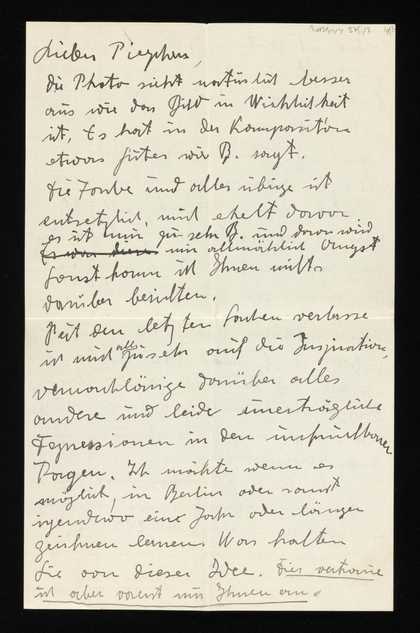 Lieber Piezphus,
die Photo sieht natürlich besser
aus wie das Bild in Wirklichkeit
ist. Es hat in der Komposition
etwas gutes wie B. sagt.
Die Farbe und alles übrige ist
entsetzlich, mich ekelt davor.
es ist mir zu sehr B. und davor wird
mir allmählich Angst
Sonst kann ich Ihnen nichts
darüber berichten.
Bei den letzten Sachen verlasse
ich mich allzusehr auf die Inspiration,
vernachlässige darüber alles
andere und leide unerträgliche
Depressionen in den unfruchtbaren
Tagen. Ich möchte wenn es
möglich, in Berlin oder sonst
irgendwo eine Jahr oder länger
zeichnen lernen. Was halten
Sie von dieser Idee. Dies vertraue
ich aber vorerst nur Ihnen an.